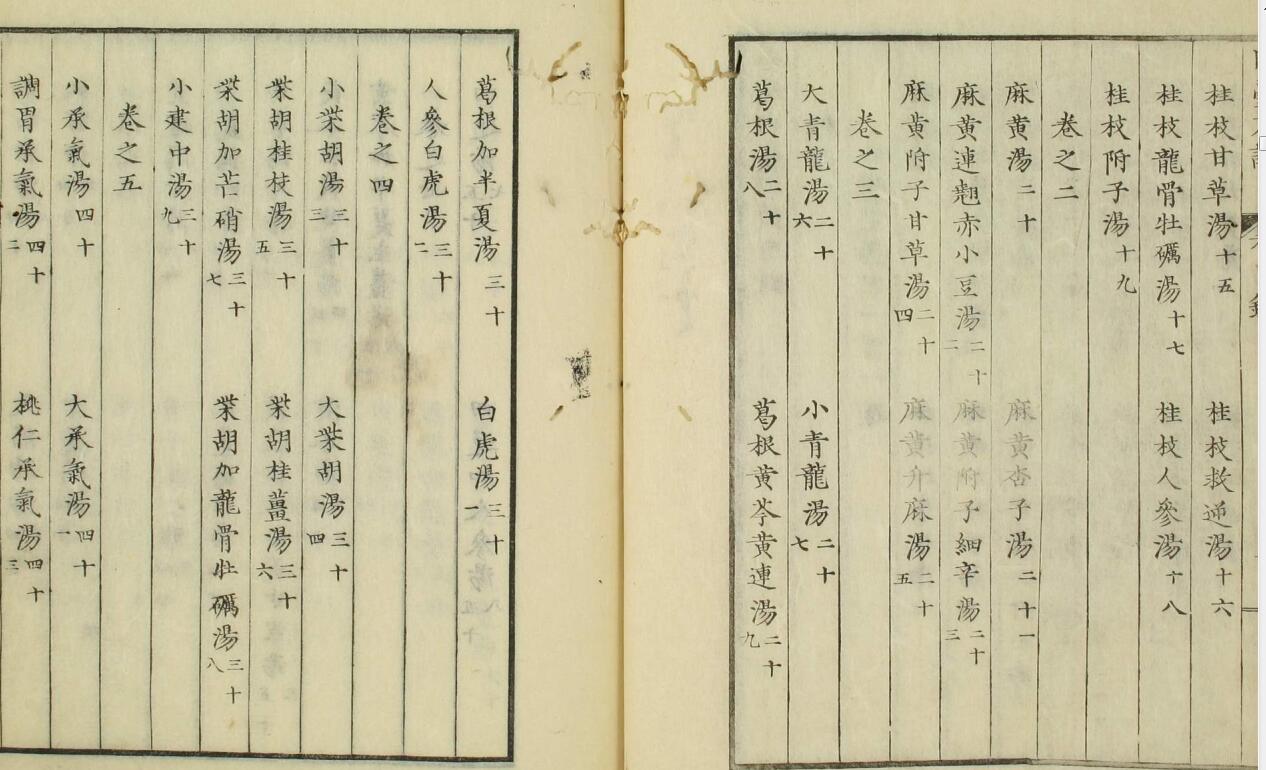 桂枝甘草湯十五 桂枝救逆湯十六
桂枝龍骨牡礪湯十七 桂枝人參湯十八
桂枝附子湯十九
卷之二
麻黄湯二十 麻黄杏子湯二十一
麻黄連翹赤小豆湯二十二 麻黄附子細辛湯二十三
麻黄附子甘草湯二十四 麻黄升麻湯二十五
卷之三
大青龍湯二十六 小青龍湯二十七
葛根湯二十八 葛根黄芩黄連湯二十九
葛根加半夏湯三十 白虎湯三十一
人參白虎湯三十二
卷之四
小柴胡湯三十三 大柴胡湯三十四
柴胡桂枝湯三十五 柴胡桂薑湯三十六
柴胡加芒硝湯三十七 柴胡加龍骨牡礪湯三十八
小建中湯三十九
卷之五
小承氣湯四十 大承氣湯四十一
調胃承氣湯四十二 桃仁承氣湯四十三